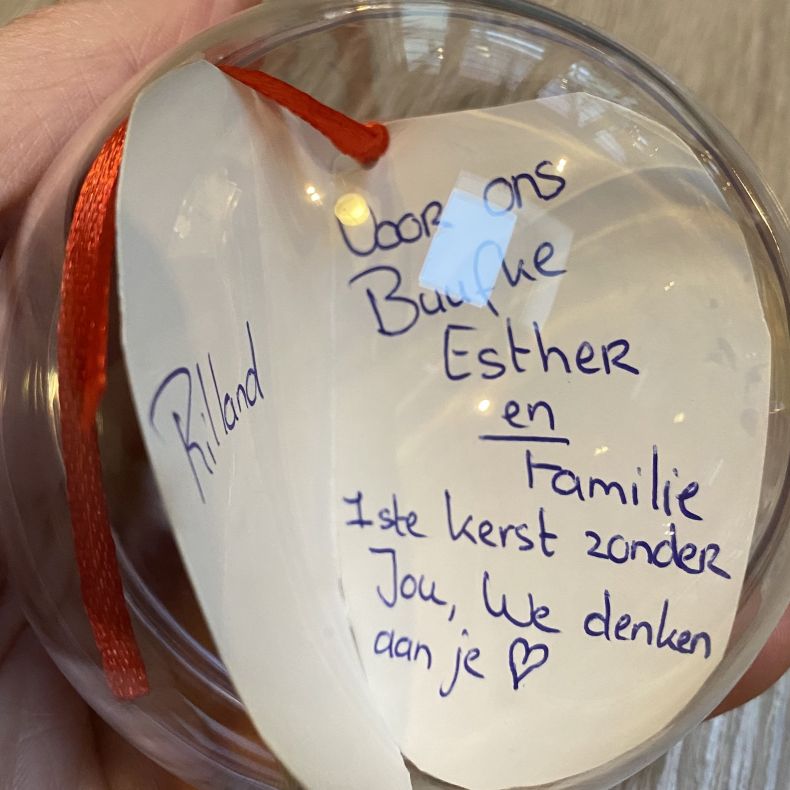 Rilland
Voor ons
Buufke
Esther
en
Familie
1ste kerst zonder
Jou, We denken
aan je ♡